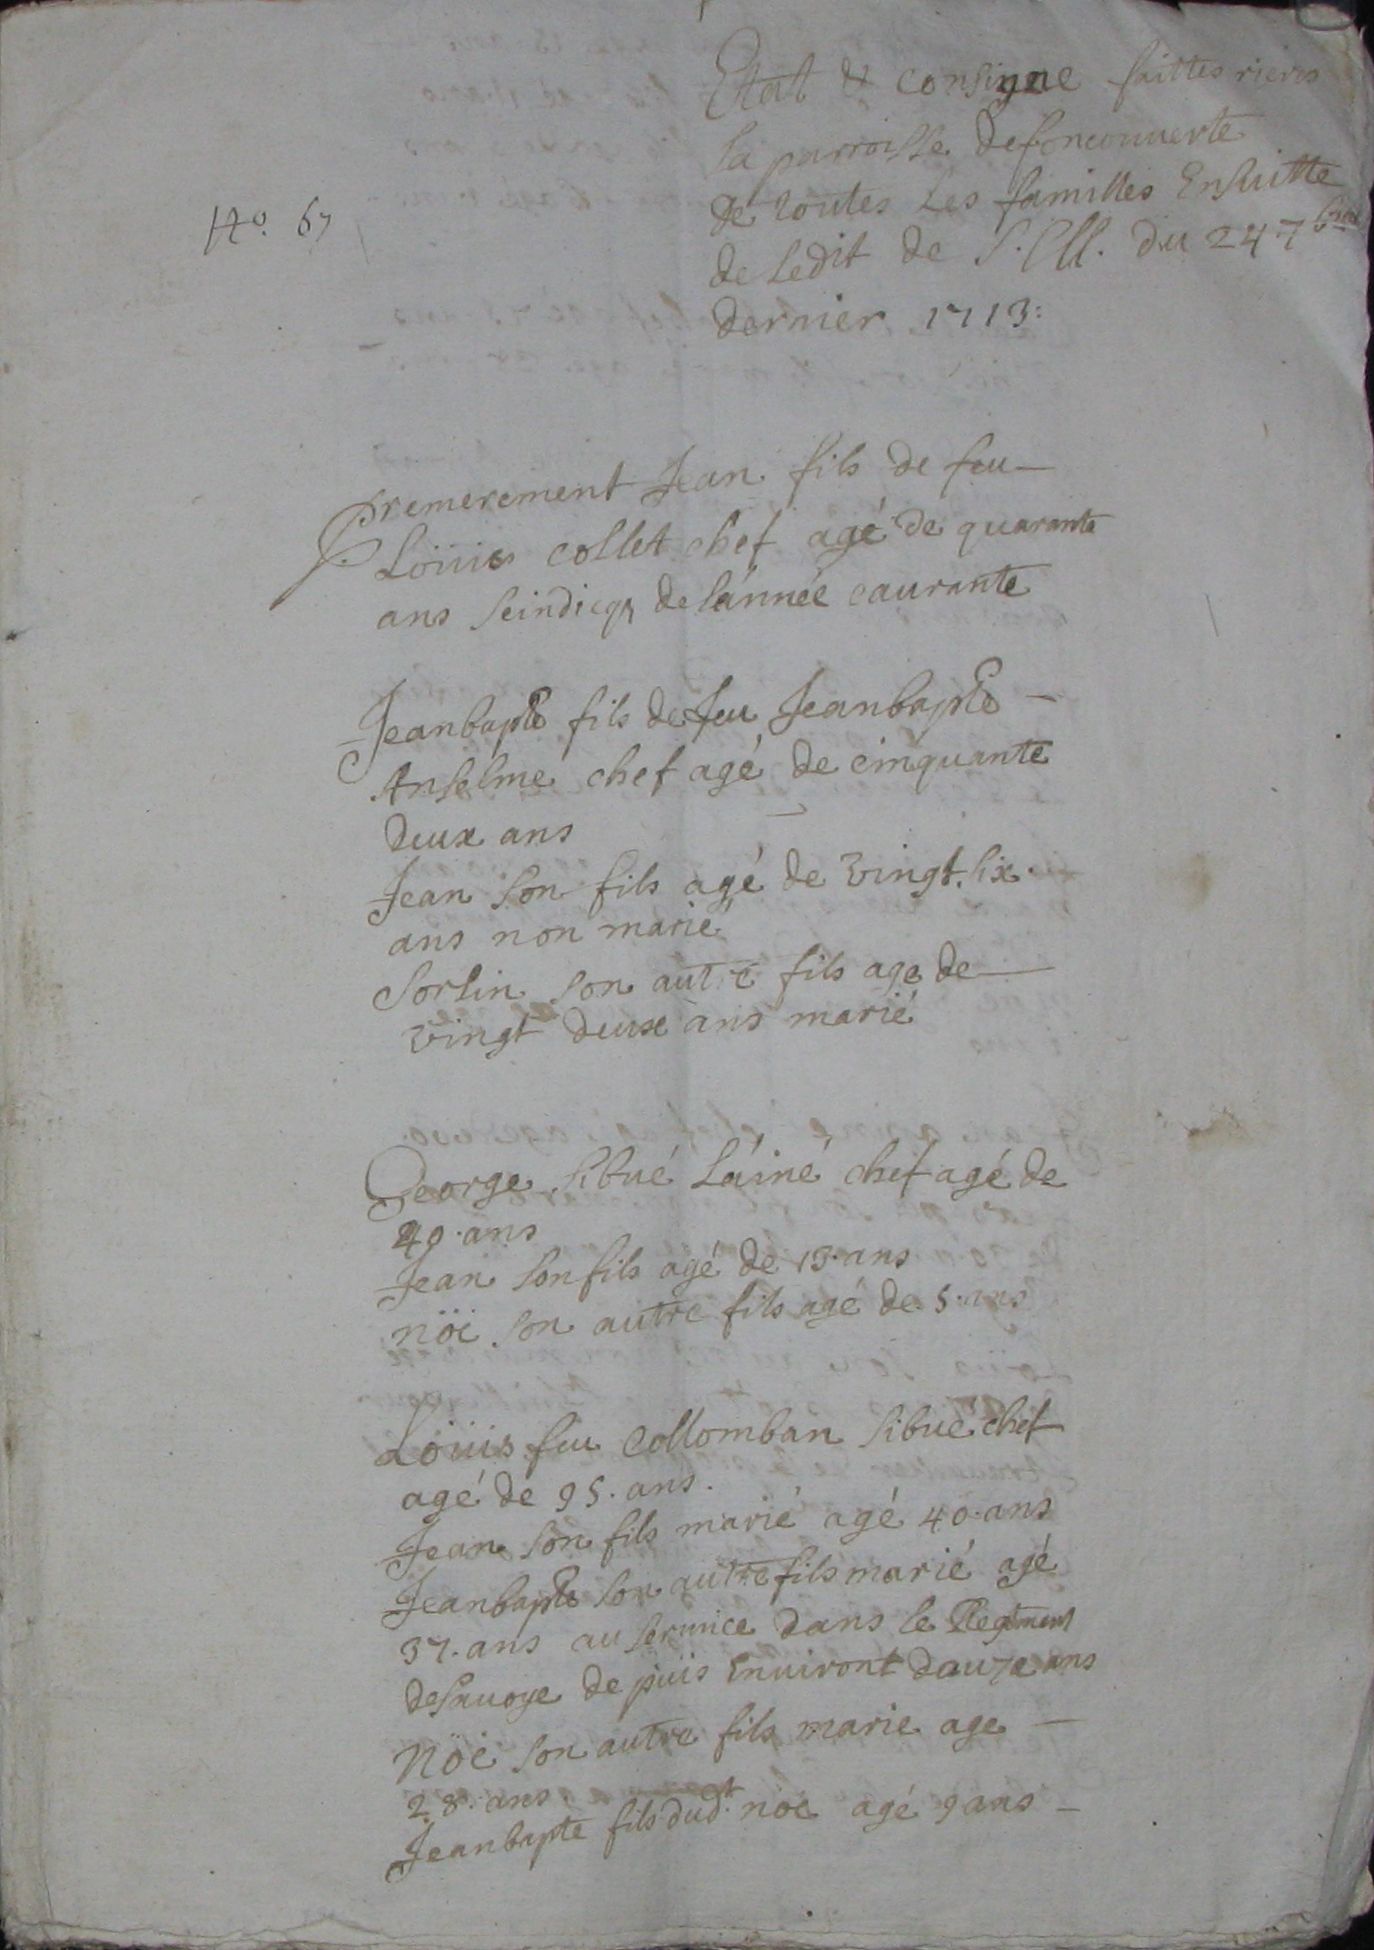 Etat & consigne faittes riers
la parroisse de fonconuerte
de toutes Les familles Ensuitte
de Ledit de S. M. du 24. 7bre
dernier 1713:
No. 67
Premerement Jean fils de feu
Loüis collet chef agé de quarante
ans Seindicq de lánnée caurante
Jeanbapte fils de feu Jeanbapte
Anselme chef agé de cinquante
deux ans
Jean son fils agé de vingt six
ans non marié
Sorlin son autre fils age de
vingt deux ans marié
George Sibué Láiné chef agé de
49. ans
Jean son fils agé de 13. ans
nöé son autre fils agé de 5. ans
Loüis feu Collomban Sibué chef
agé de 95. ans.
Jean son fils marié agé 40. ans
Jeanbapte son autre fils marié agé
37. ans au seruice dans le Regiment
de Sauoye de puis Enuiront dauze ans
Nöé son autre fils marie age
28. ans
Jeanbapte fils dudt noe agé 9 ans